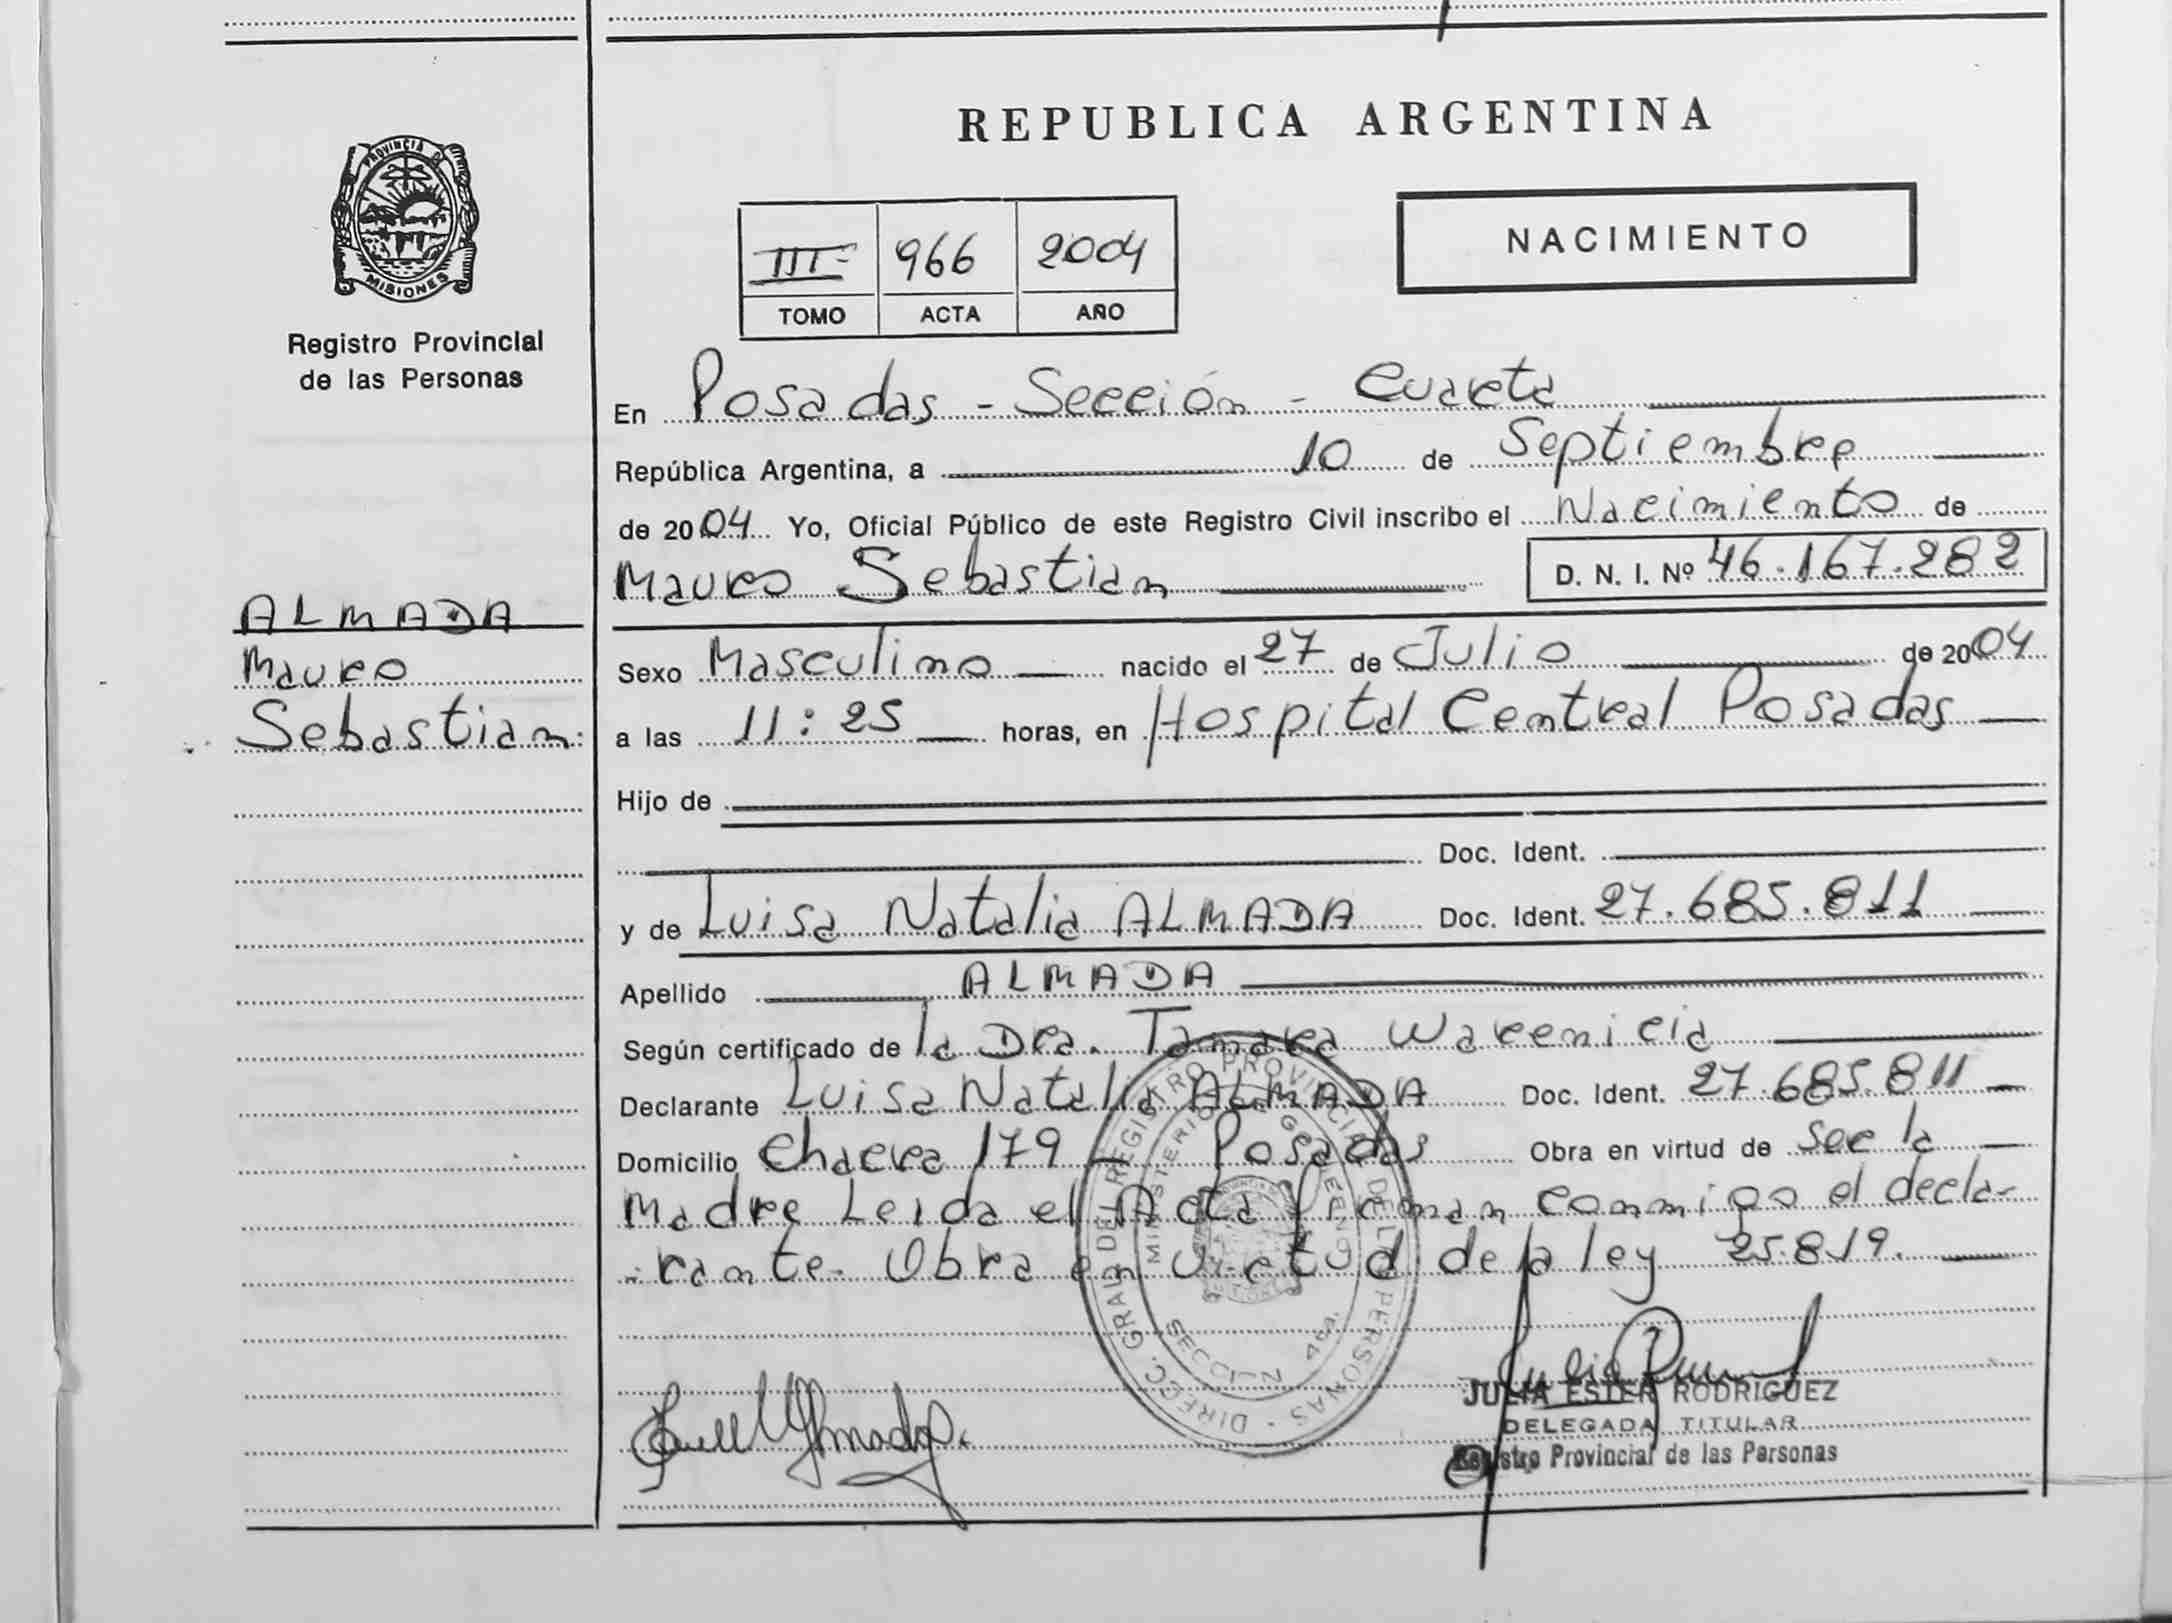 REPUBLICA ARGENTINA
PROVINCIA DE
MISIONES
Registro Provincial
de las Personas
NACIMIENTO
III 966 2004
TOMO ACTA AÑO
En Posadas - Sección - Cuarta
República Argentina, a 10 de Septiembre
de 2004 Yo, Oficial Público de este Registro Civil inscribo el Nacimiento de
Mauro Sebastian D. N. I. Nº 46.167.282
ALMADA
Mauro
Sebastian
Sexo Masculino nacido el 27 de Julio de 2004
a las 11:25 horas, en Hospital Central Posadas
Hijo de
Doc. Ident.
y de Luisa Natalia ALMADA Doc. Ident. 27.685.811
Apellido ALMADA
Según certificado de la Dra. Tamara
Declarante Luisa Natalia ALMADA Doc. Ident. 27.685.811
Domicilio Chacra 179 - Posadas Obra en virtud de Ser la
Madre Leida el Acta Firman conmigo el decla-
rante. Obra en virtud de la ley 25.819.
DIRECC. GRAL. DEL REGISTRO PROVINCIAL DE LAS PERSONAS
MINISTERIO DE GOBIERNO
SECCION 4ta.
JULIA ESTER RODRIGUEZ
DELEGADA TITULAR
Registro Provincial de las Personas